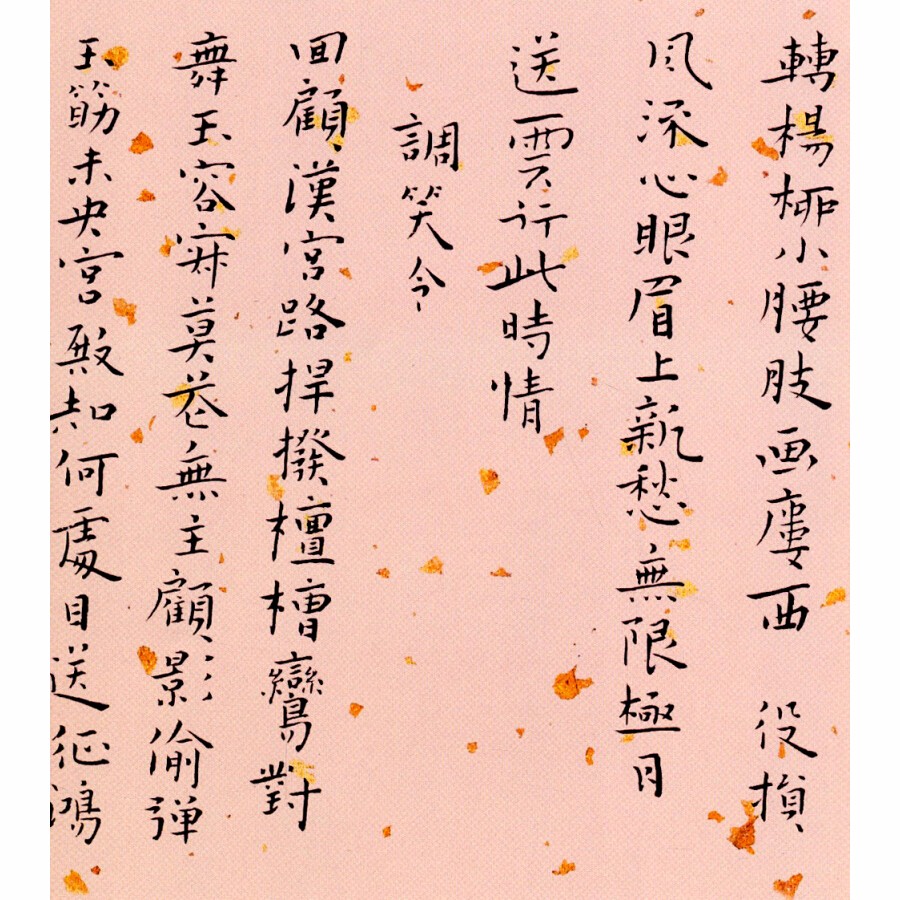 轉楊柳小腰肢画廔西 役損
風流心眼眉上新愁無限極目
送雲行此時情
調笑令
回顧漢宮路捍撥檀槽鸞對
舞玉容寂莫花無主顧影偷弹
玉筯未央宮殿知何處目送征鴻